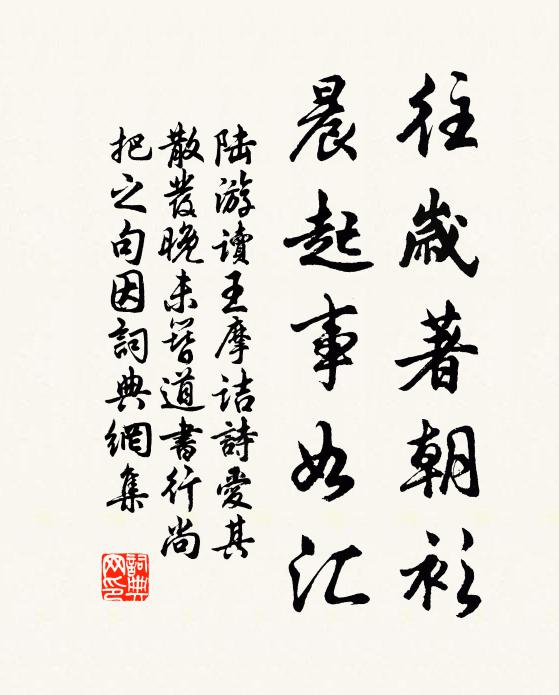 往歲著朝衫
晨起事如汇
陆游讀王摩诘詩愛其
散發晚未簪道書行尚
把之句因詞典網集
詞典网印